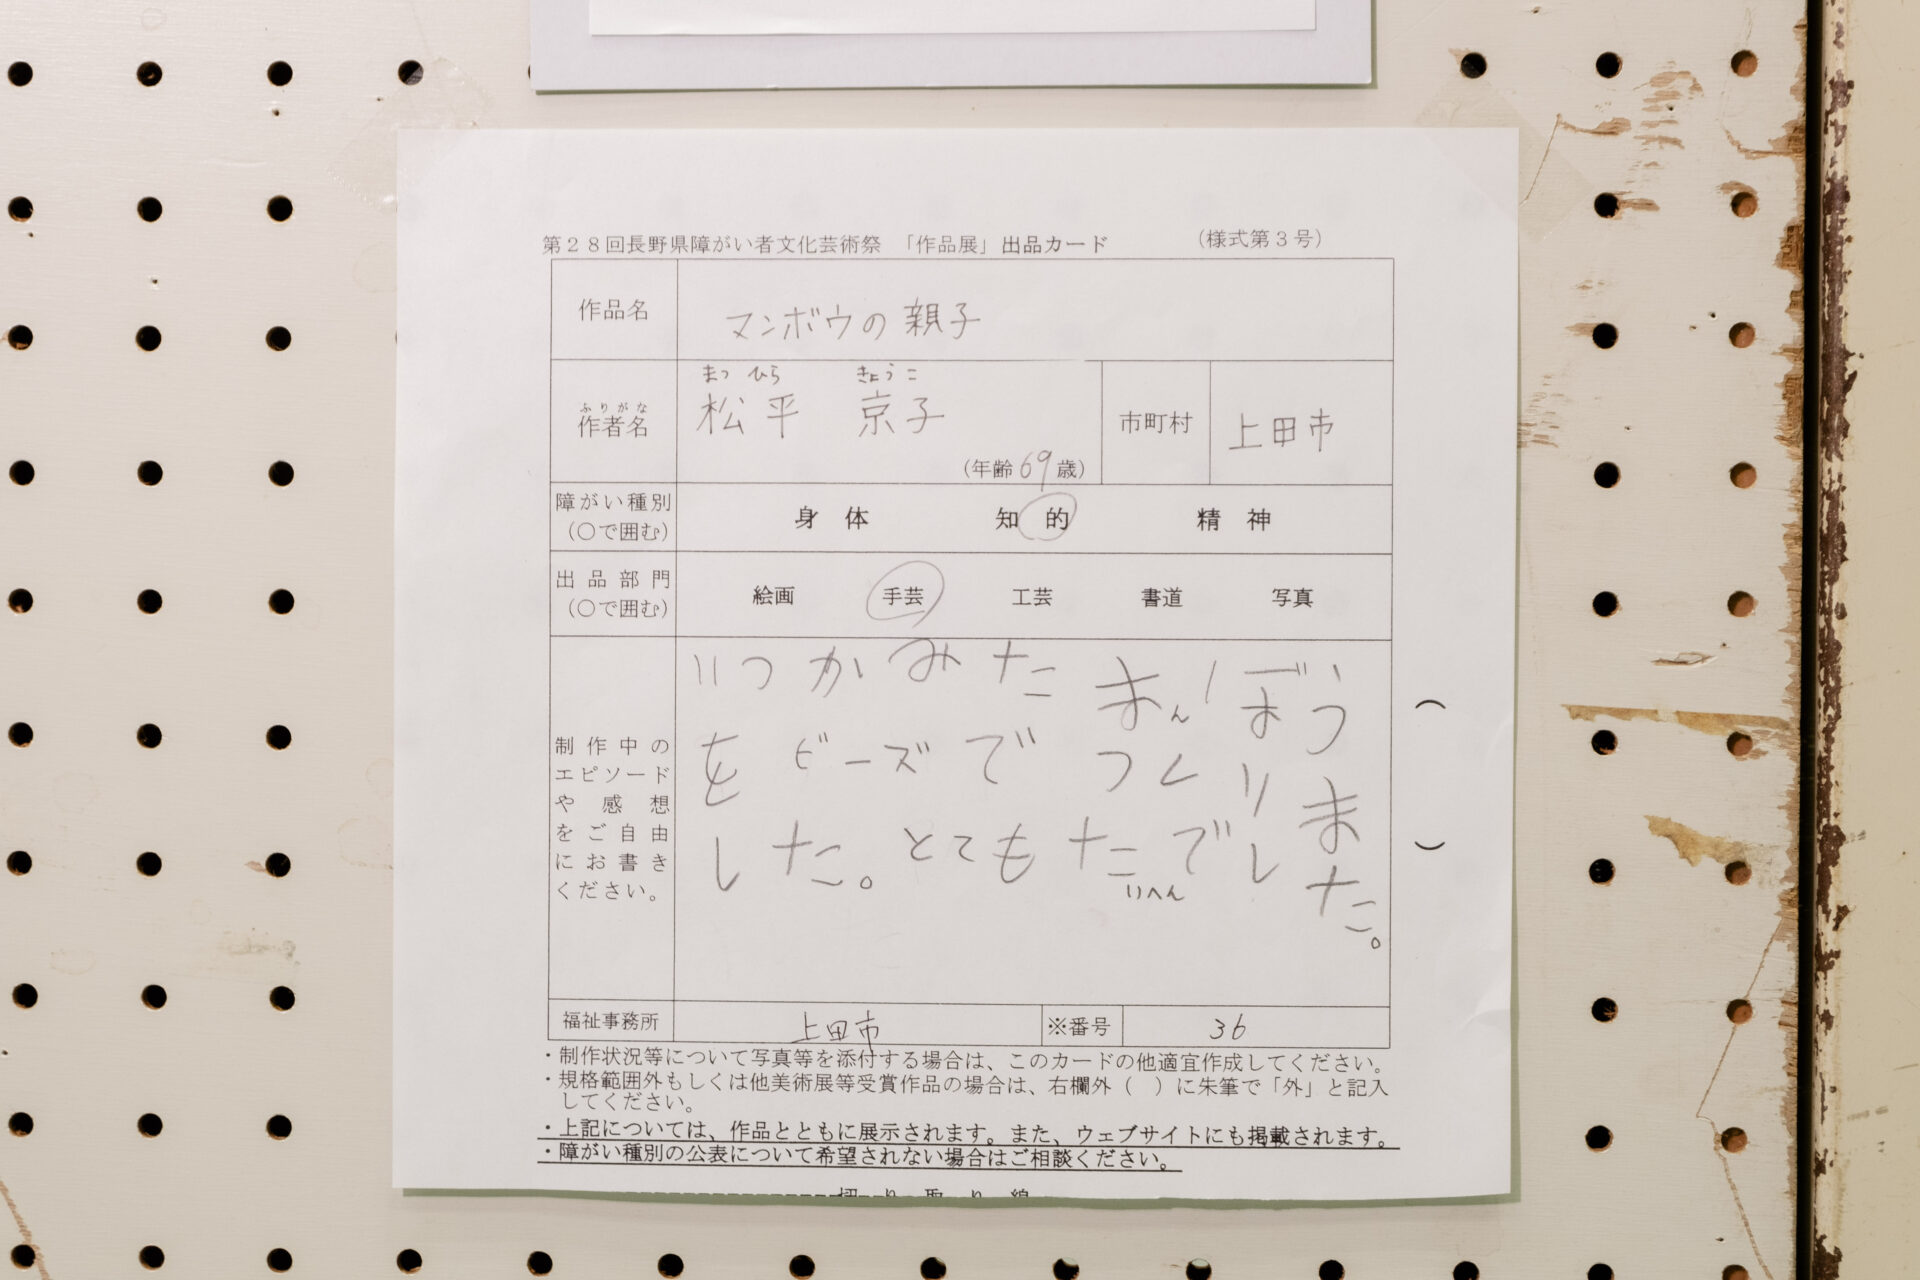 第28回長野県障がい者文化芸術祭 「作品展」出品カード (様式第3号)
作品名 マンボウの親子
まつ ひら きょうこ
ふりがな
作者名 松平 京子
(年齢69歳)
市町村 上田市
障がい種別
(○で囲む)
身体 知的 精神
出品部門
(○で囲む)
絵画 手芸 工芸 書道 写真
制作中の
エピソード
や感想
をご自由
にお書き
ください。
いつかみた まんぼう
をビーズで つくりま
した。とてもたいへんでした。
( )
福祉事務所 上田市 ※番号 36
・制作状況等について写真等を添付する場合は、このカードの他適宜作成してください。
・規格範囲外もしくは他美術展等受賞作品の場合は、右欄外( )に朱筆で「外」と記入
してください。
・上記については、作品とともに展示されます。また、ウェブサイトにも掲載されます。
・障がい種別の公表について希望されない場合はご相談ください。
切り取り線